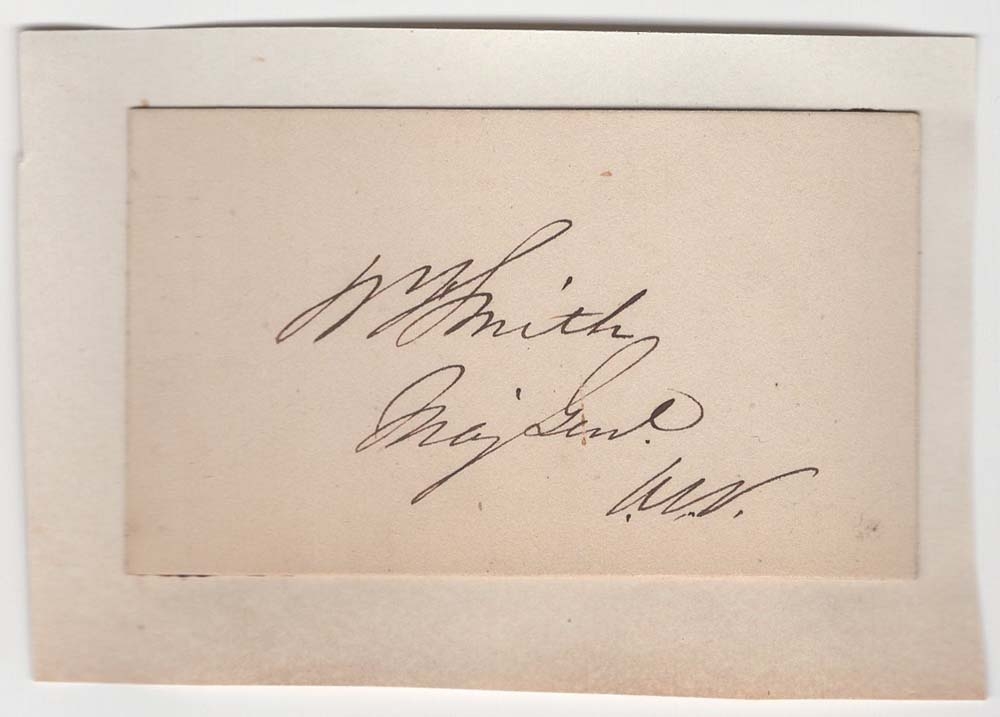 Wm F Smith
Maj Genl.
U.S.V.